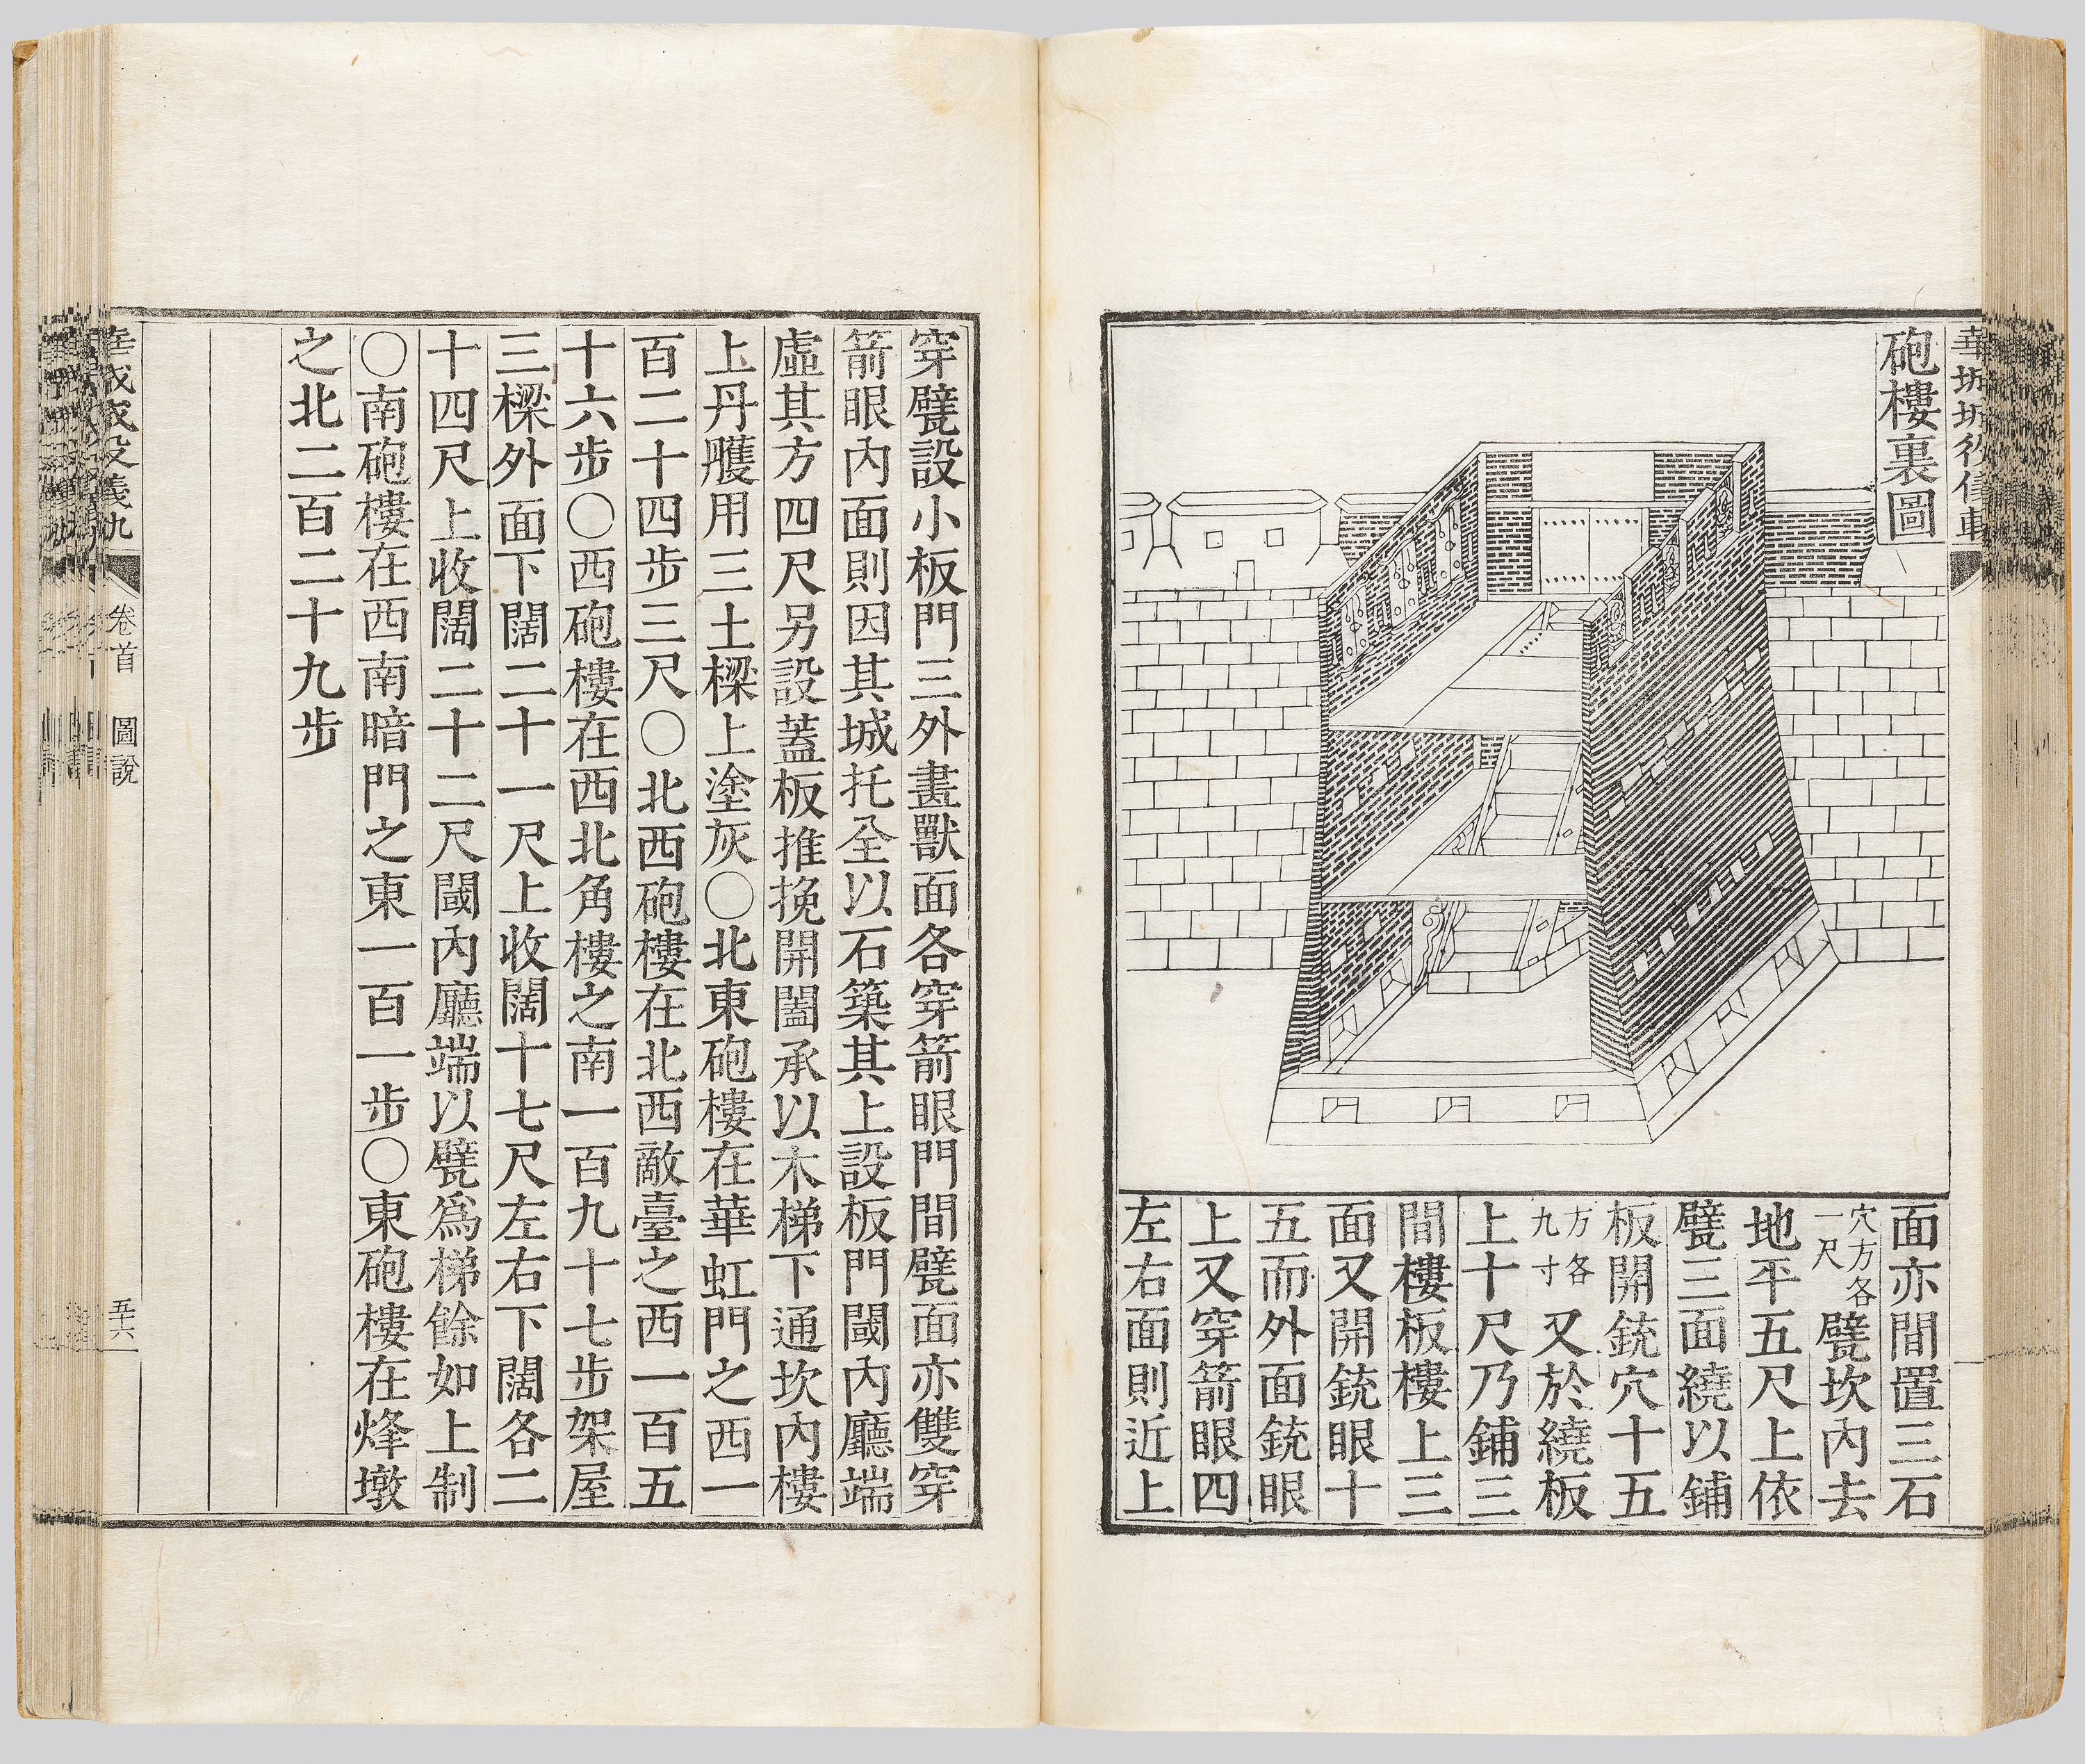 砲樓裏圖
面亦間置三石
穴方各一尺甓坎內去
地平五尺上依
甓三面繞以鋪
板開銃穴十五
方各九寸又於繞板
上十尺乃鋪三
間樓板樓上三
面又開銃眼十
五而外面銃眼
上又穿箭眼四
左右面則近上
穿甓設小板門三外畫獸面各穿箭眼門間甓面亦雙穿
箭眼內面則因其城托全以石築其上設板門閾內廳端
虛其方四尺另設蓋板推挽開闔承以木梯下通坎內樓
上丹雘用三土樑上塗灰〇北東砲樓在華虹門之西一
百二十四步三尺〇北西砲樓在北西敵臺之西一百五
十六步〇西砲樓在西北角樓之南一百九十七步架屋
三樑外面下闊二十一尺上收闊十七尺左右下闊各二
十四尺上收闊二十二尺閾內廳端以甓爲梯餘如上制
〇南砲樓在西南暗門之東一百一步〇東砲樓在烽墩
之北二百二十九步
卷首 圖說
五十六